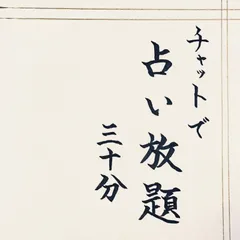 チャットで
占い放題
三十分